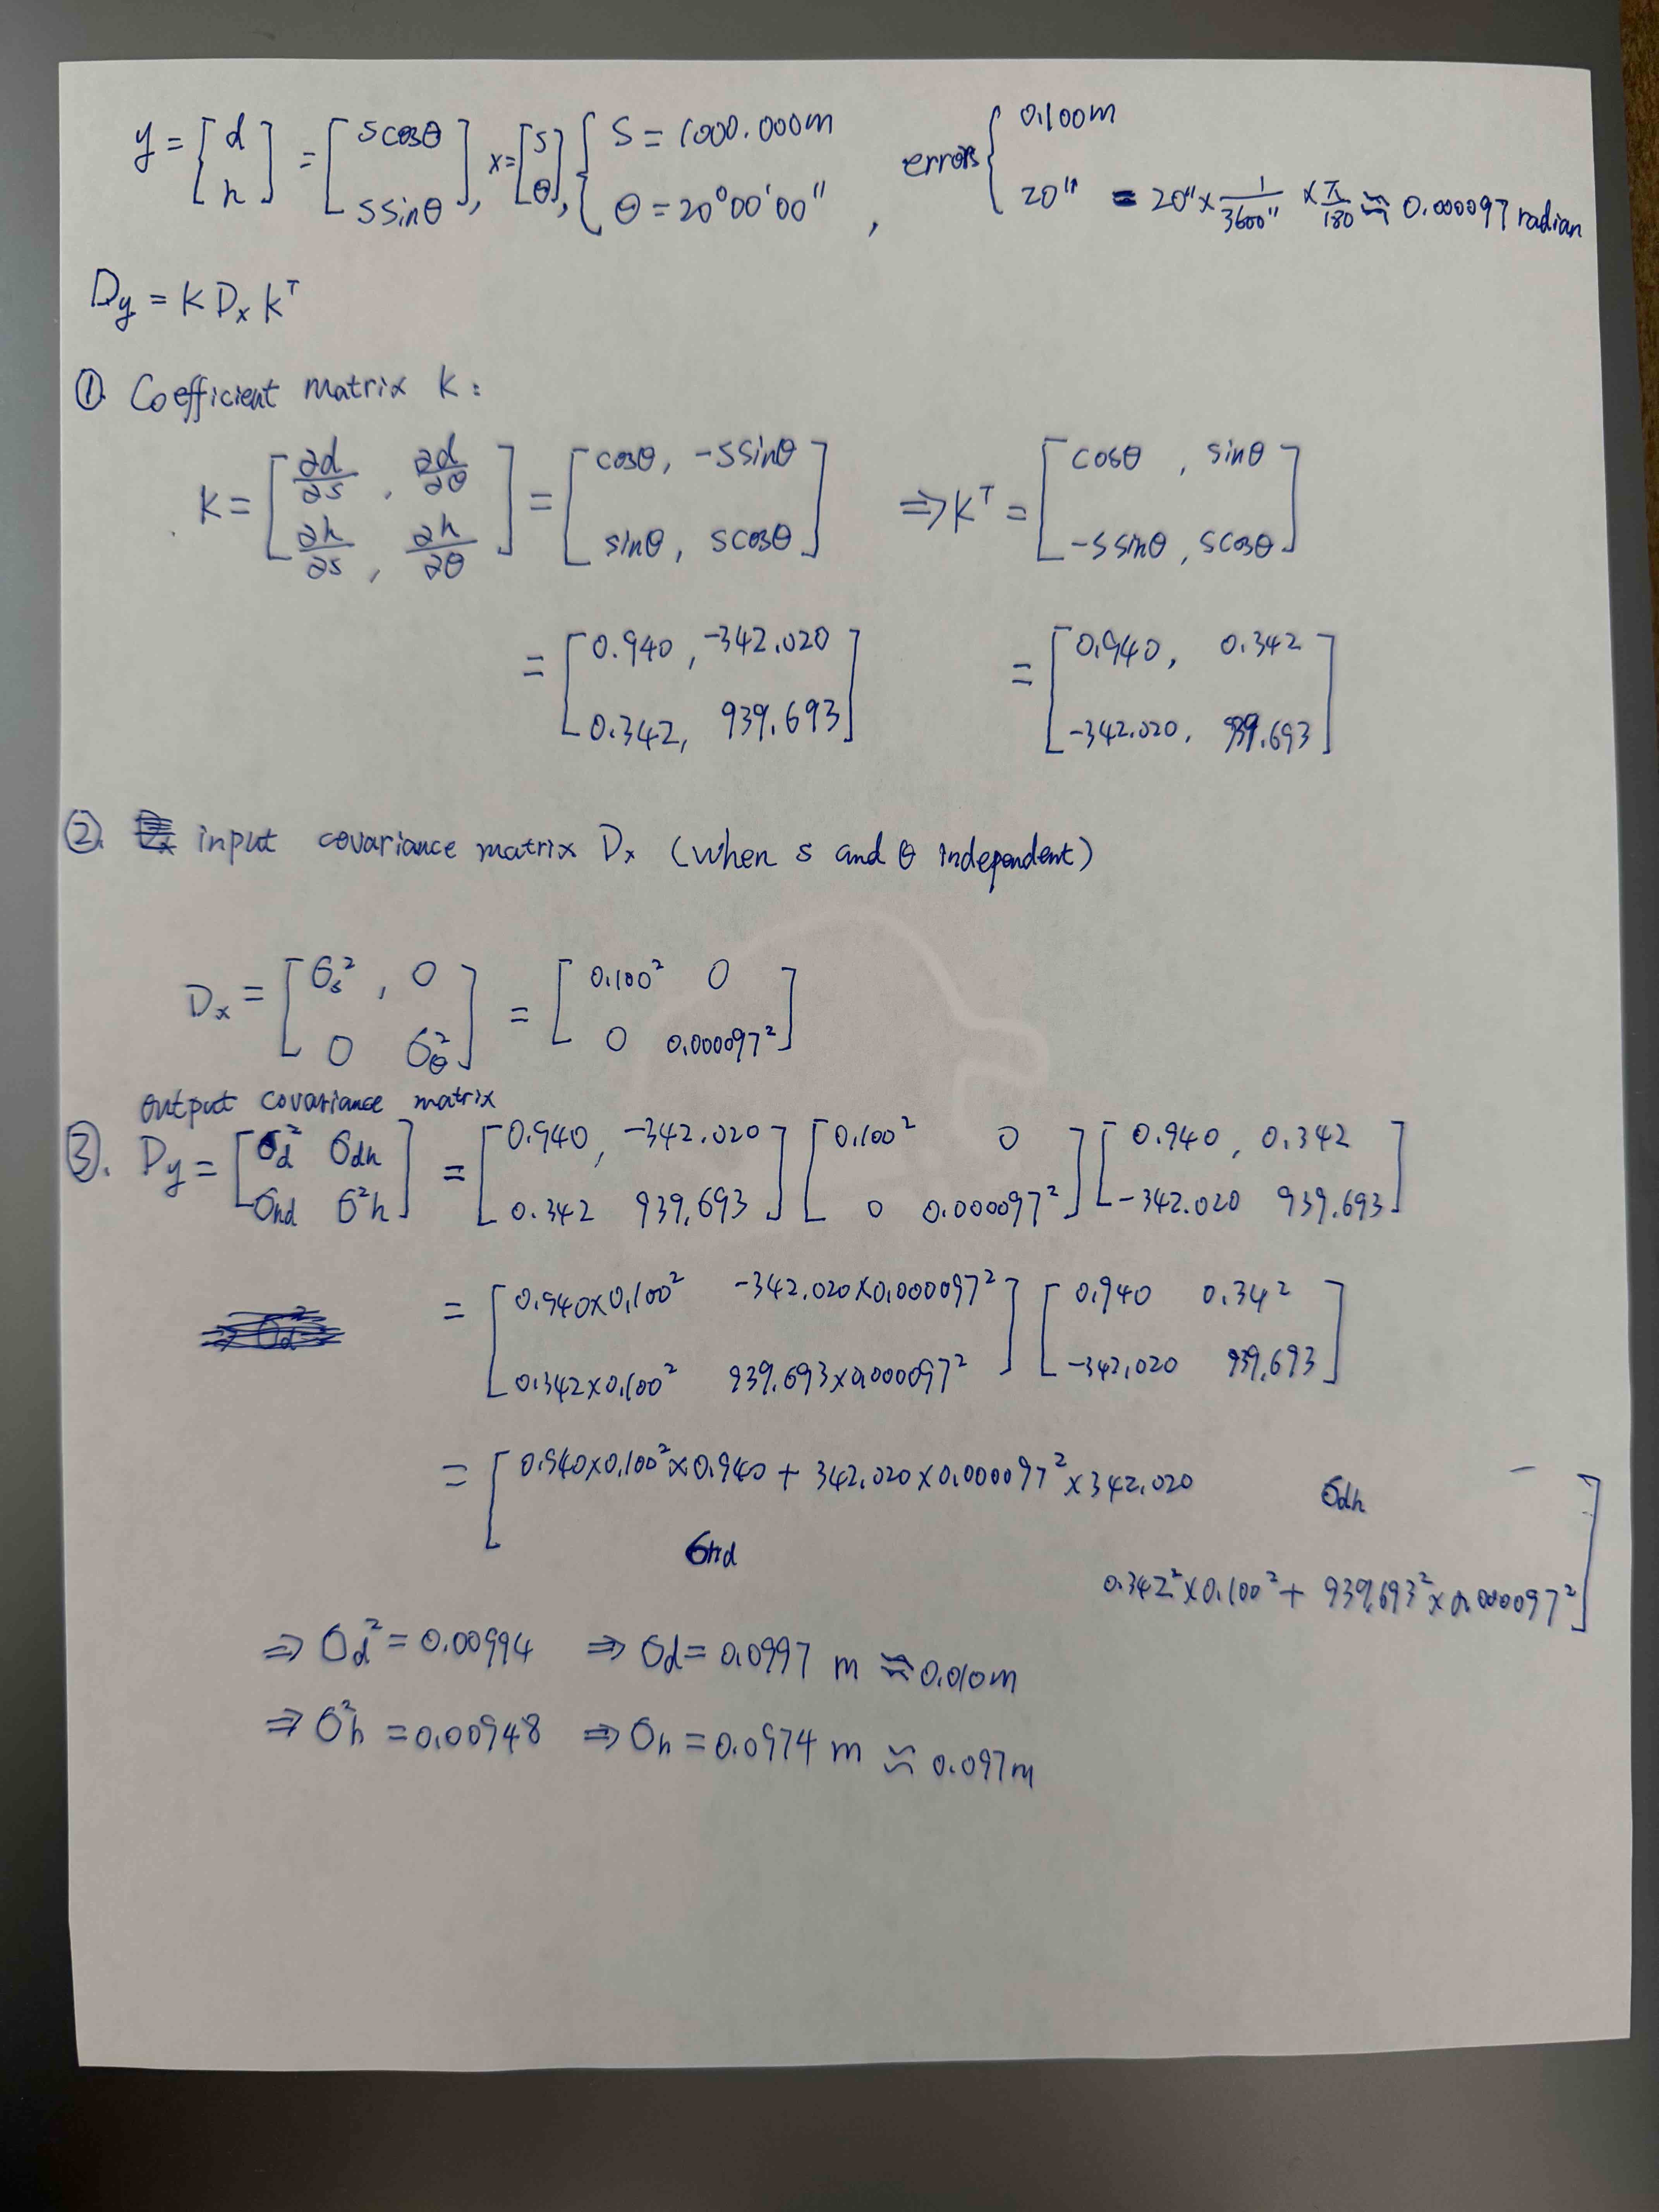 y = [d h] = [scosθ ssinθ], x=[s θ], { S = 1000.000m θ = 20°00'00" , errors { 0.100m 20" = 20"×1/3600" ×π/180 ≈ 0.000097 radian
Dy = K Dx K^T
① Coefficient matrix K :
K = [∂d/∂s , ∂d/∂θ ∂h/∂s , ∂h/∂θ] = [cosθ, -ssinθ sinθ, scosθ] ⇒ K^T = [cosθ , sinθ -ssinθ , scosθ]
= [0.940 , -342.020 0.342, 939.693] = [0.940, 0.342 -342.020, 939.693]
②. input covariance matrix Dx (when s and θ independent)
Dx = [σs² , 0 0 σθ²] = [0.100² 0 0 0.000097²]
output covariance matrix
③. Dy = [σd² σdh σhd σ²h] = [0.940, -342.020 0.342 939.693] [0.100² 0 0 0.000097²] [0.940 , 0.342 -342.020 939.693]
= [0.940×0.100² -342.020×0.000097² 0.342×0.100² 939.693×0.000097²] [0.940 0.342 -342.020 939.693]
= [0.940×0.100²×0.940 + 342.020×0.000097²×342.020 σdh σhd 0.342²×0.100² + 939.693²×0.000097²]
⇒ σd² = 0.00994 ⇒ σd = 0.0997 m ≈ 0.010m
⇒ σ²h = 0.00948 ⇒ σh = 0.0974 m ≈ 0.097m